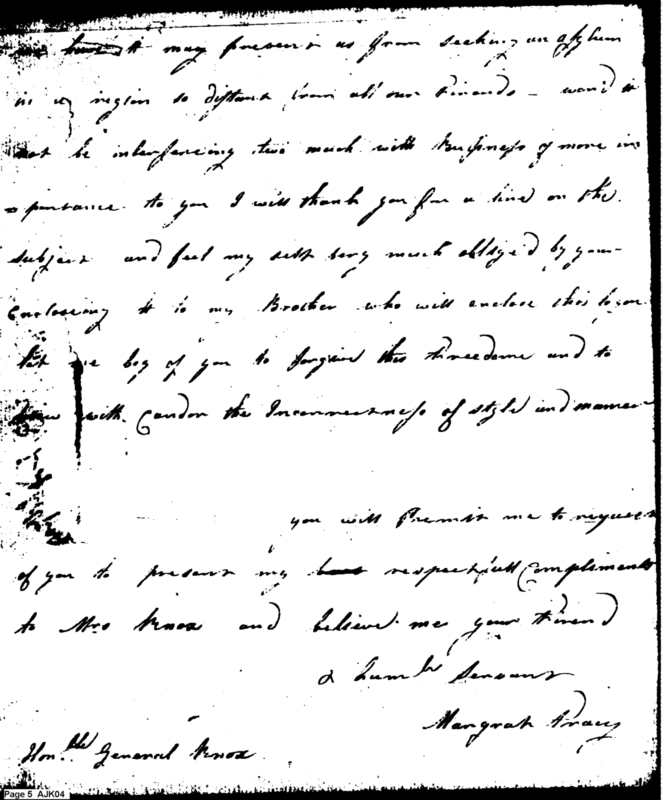 it may present us from seeking an asylum
in a region so distant from all our Friends - wou'd it
not be interfearing two much with business of more im
=portance to you I will thank you for a line on the
subject and feel my self very much oblige'd by your
Encloseing it to my Brother who will enclose this to you
let me beg of you to forgive this Freedome and to
view with Candor the Incorrectness of style and manner
you will Permit me to request
of you to present my respectfull Compliments
to Mrs Knox and believe me your Friend
& humble Servant
Margrat Tracy
Hon.ble General Knox
Page 5 AJK04